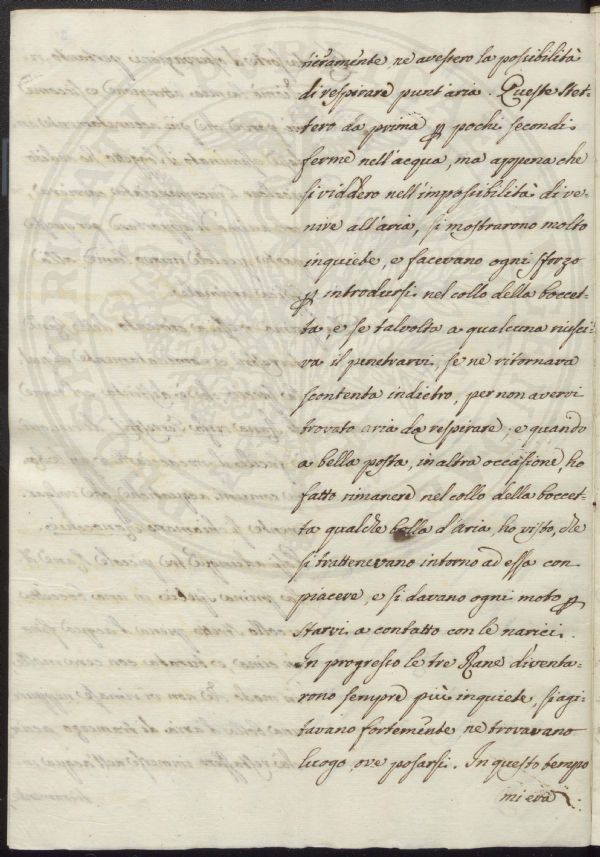 nieramente ne avessero la possibilità
di respirare punt'aria. Queste stet-
tero da prima p pochi secondi
ferme nell'acqua, ma appena che
si viddero nell'impossibilità di ve-
nire all'aria, si mostrarono molto
inquiete, e facevano ogni sforzo
p introdursi nel collo della boccet-
ta, e se talvolta a qualcuna riusci-
va il penetrarvi, se ne ritornava
scontenta indietro, per non avervi
trovato aria da respirare, e quando
a bella posta, in altra occasione, ho
fatto rimanere nel collo della boccet-
ta qualche bolla d'aria, ho visto, che
si trattenevano intorno ad essa con
piacere, e si davano ogni moto p
starvi a contatto con le narici.
In progresso le tre Rane diventa-
rono sempre più inquiete, si agi-
tavano fortemente ne trovavano
luogo ove posarsi. In questo tempo
mi era